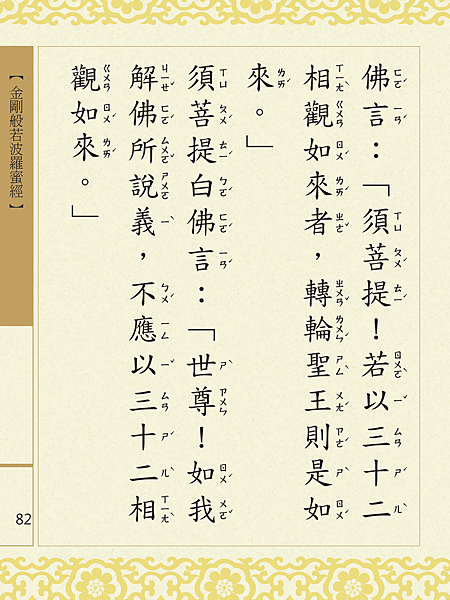 佛言：「須菩提！若以三十二
相觀如來者，轉輪聖王則是如
來。」
須菩提白佛言：「世尊！如我
解佛所說義，不應以三十二相
觀如來。」
【金剛般若波羅蜜經】
82